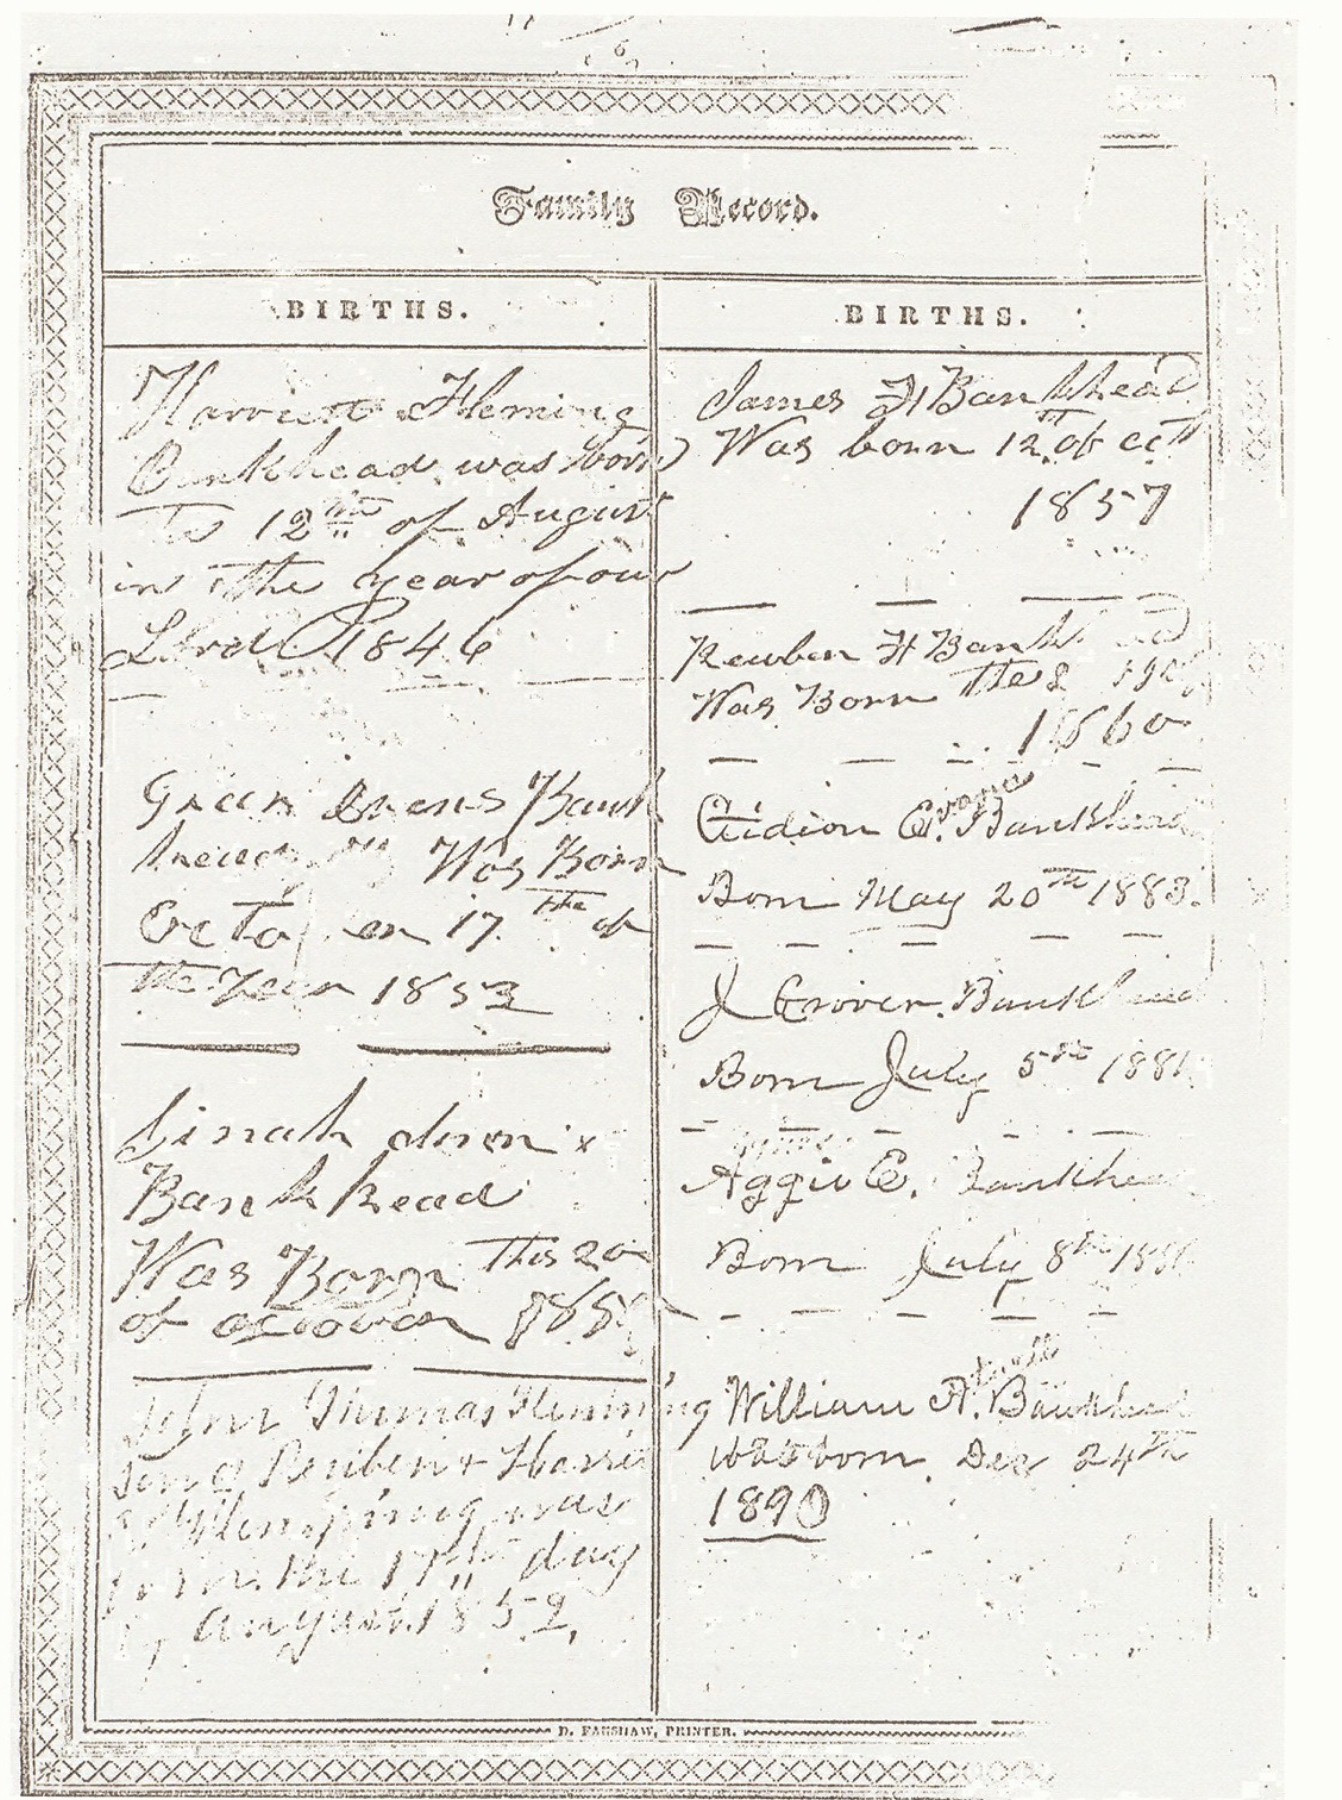 Family Record.
BIRTHS.
Harriett Fleming
Bankhead was born
12th of August
in the year of our
Lord 1846
Green Evens Bank
head Was Born
Octo on 17 the of
the Year 1853
Bankhead
Was Born This 20
of
John Thumas Flemming
son of Reuben + Harriet
Flemming was
born the 17th day
August 1852,
BIRTHS.
James H Bankhead
Was born 12th of oct
1857
Reuben H Bank
Was Born The 8
1860
Gidion E. Bankhead
Evans
Born May 20th 1883.
J Grover. Bankhead
Born July 5th 188
Aggie E. Bankhead
Born July 8th
William A. Bankhead
was born Dec 24th
1890
D. FANSHAW, PRINTER.